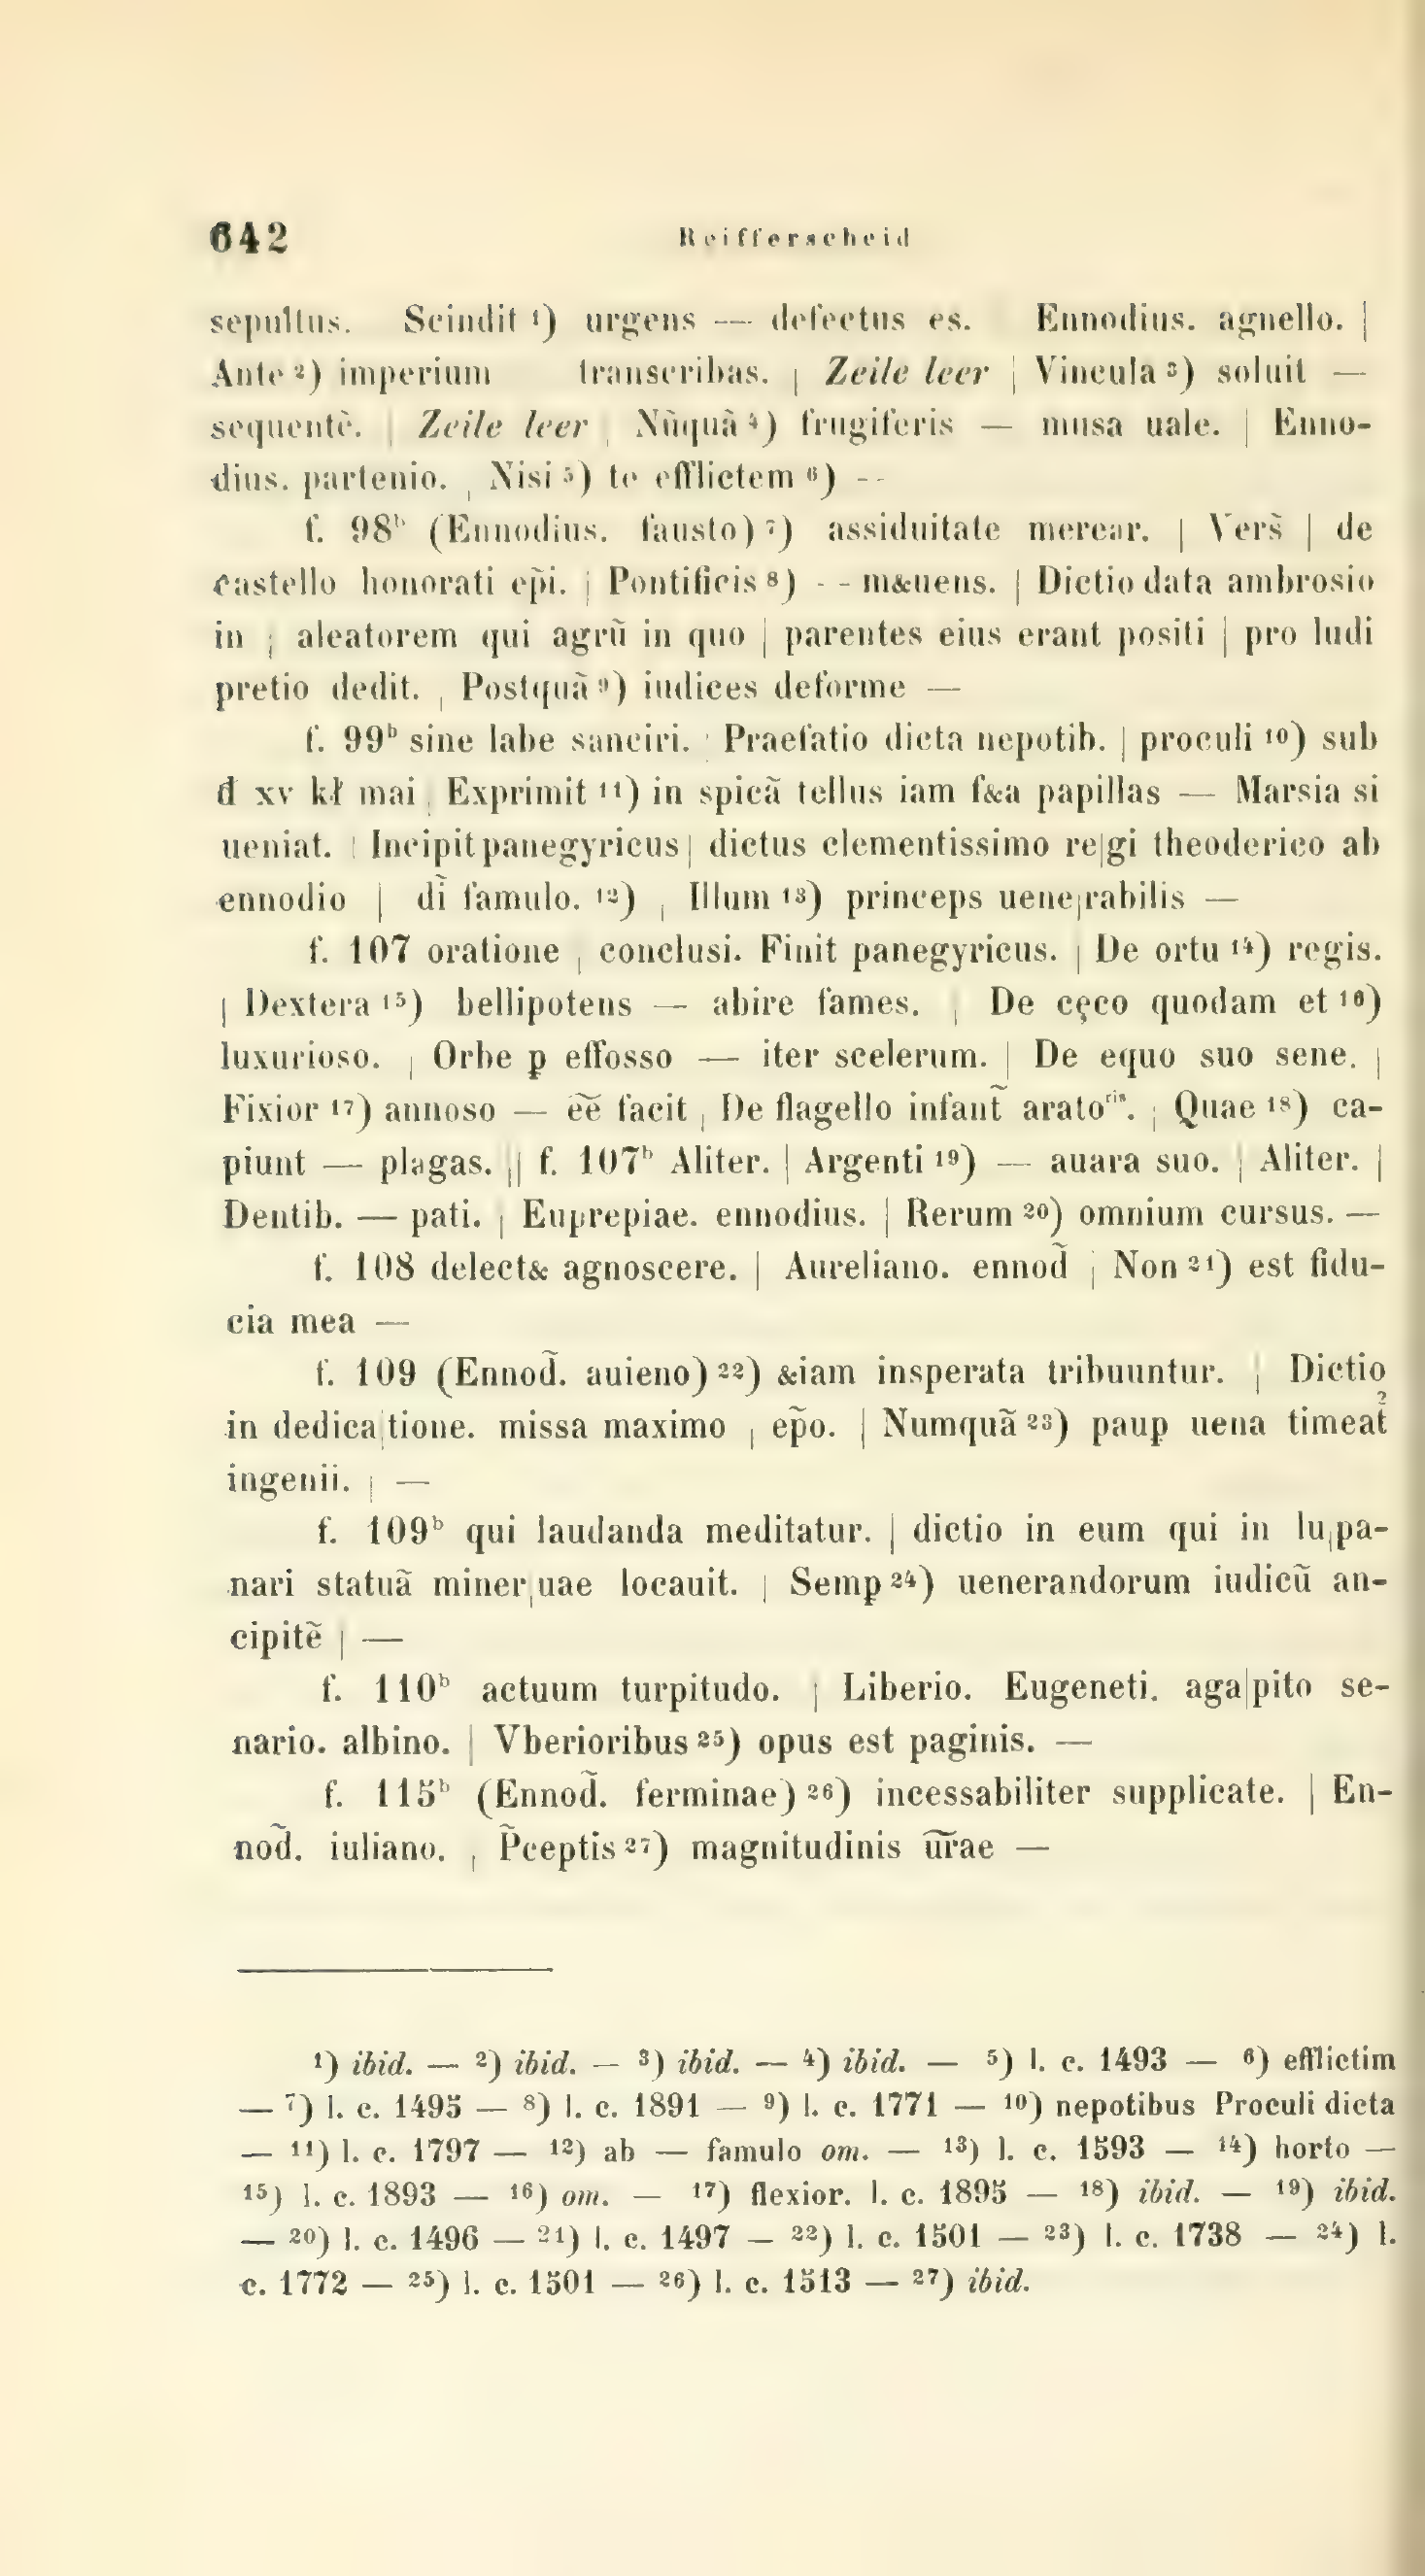 642 Reifferscheid
sepultus. Scindit ¹) urgens — defectus es. Ennodius. agnello. |
Ante ²) imperium transcribas. | Zeile leer | Vincula ³) soluit —
sequentẽ. | Zeile leer | Nũquã ⁴) frugiferis — musa uale. | Enno-
dius. partenio. | Nisi ⁵) te efflictem ⁶) —
f. 98ᵇ (Ennodius. fausto) ⁷) assiduitate merear. | Vers̃ | de
castello honorati ep̃i. | Pontificis ⁸) — m&uens. | Dictio data ambrosio
in | aleatorem qui agrũ in quo | parentes eius erant positi | pro ludi
pretio dedit. | Postquã ⁹) iudices deforme —
f. 99ᵇ sine labe sanciri. | Praefatio dicta nepotib. | proculi ¹⁰) sub
đ xv kł mai | Exprimit ¹¹) in spicã tellus iam f&a papillas — Marsia si
ueniat. | Incipit panegyricus | dictus clementissimo re|gi theoderico ab
ennodio | dĩ famulo. ¹²) | Illum ¹³) princeps uene|rabilis —
f. 107 oratione | conclusi. Finit panegyricus. | De ortu ¹⁴) regis.
| Dextera ¹⁵) bellipotens — abire fames. | De cęco quodam et ¹⁶)
luxurioso. | Orbe ꝑ effosso — iter scelerum. | De equo suo sene. |
Fixior ¹⁷) annoso — ẽẽ facit | De flagello infant̃ aratoʳⁱˢ. | Quae ¹⁸) ca-
piunt — plagas. || f. 107ᵇ Aliter. | Argenti ¹⁹) — auara suo. | Aliter. |
Dentib. — pati. | Euprepiae. ennodius. | Rerum ²⁰) omnium cursus. —
f. 108 delect& agnoscere. | Aureliano. ennod̃ | Non ²¹) est fidu-
cia mea —
f. 109 (Ennod̃. auieno) ²²) &iam insperata tribuuntur. | Dictio
in dedica|tione. missa maximo | ep̃o. | Numquã ²³) pauꝑ uena timeat̉
ingenii. | —
f. 109ᵇ qui laudanda meditatur. | dictio in eum qui in lu|pa-
nari statuã miner|uae locauit. | Semꝑ ²⁴) uenerandorum iudicũ an-
cipitẽ | —
f. 110ᵇ actuum turpitudo. | Liberio. Eugeneti. aga|pito se-
nario. albino. | Vberioribus ²⁵) opus est paginis. —
f. 115ᵇ (Ennod̃. ferminae) ²⁶) incessabiliter supplicate. | En-
nod̃. iuliano. | P̃ceptis ²⁷) magnitudinis ũr̃ae —
¹) ibid. — ²) ibid. — ³) ibid. — ⁴) ibid. — ⁵) l. c. 1493 — ⁶) efflictim
— ⁷) l. c. 1495 — ⁸) l. c. 1891 — ⁹) l. c. 1771 — ¹⁰) nepotibus Proculi dicta
— ¹¹) l. c. 1797 — ¹²) ab — famulo om. — ¹³) l. c. 1593 — ¹⁴) horto —
¹⁵) l. c. 1893 — ¹⁶) om. — ¹⁷) flexior. l. c. 1895 — ¹⁸) ibid. — ¹⁹) ibid.
— ²⁰) l. c. 1496 — ²¹) l. c. 1497 — ²²) l. c. 1501 — ²³) l. c. 1738 — ²⁴) l.
c. 1772 — ²⁵) l. c. 1501 — ²⁶) l. c. 1513 — ²⁷) ibid.